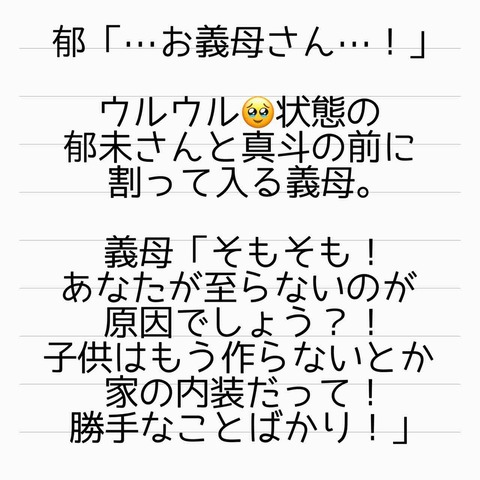 郁「…お義母さん…！」
ウルウル🥹状態の
郁未さんと真斗の前に
割って入る義母。
義母「そもそも！
あなたが至らないのが
原因でしょう？！
子供はもう作らないとか
家の内装だって！
勝手なことばかり！」